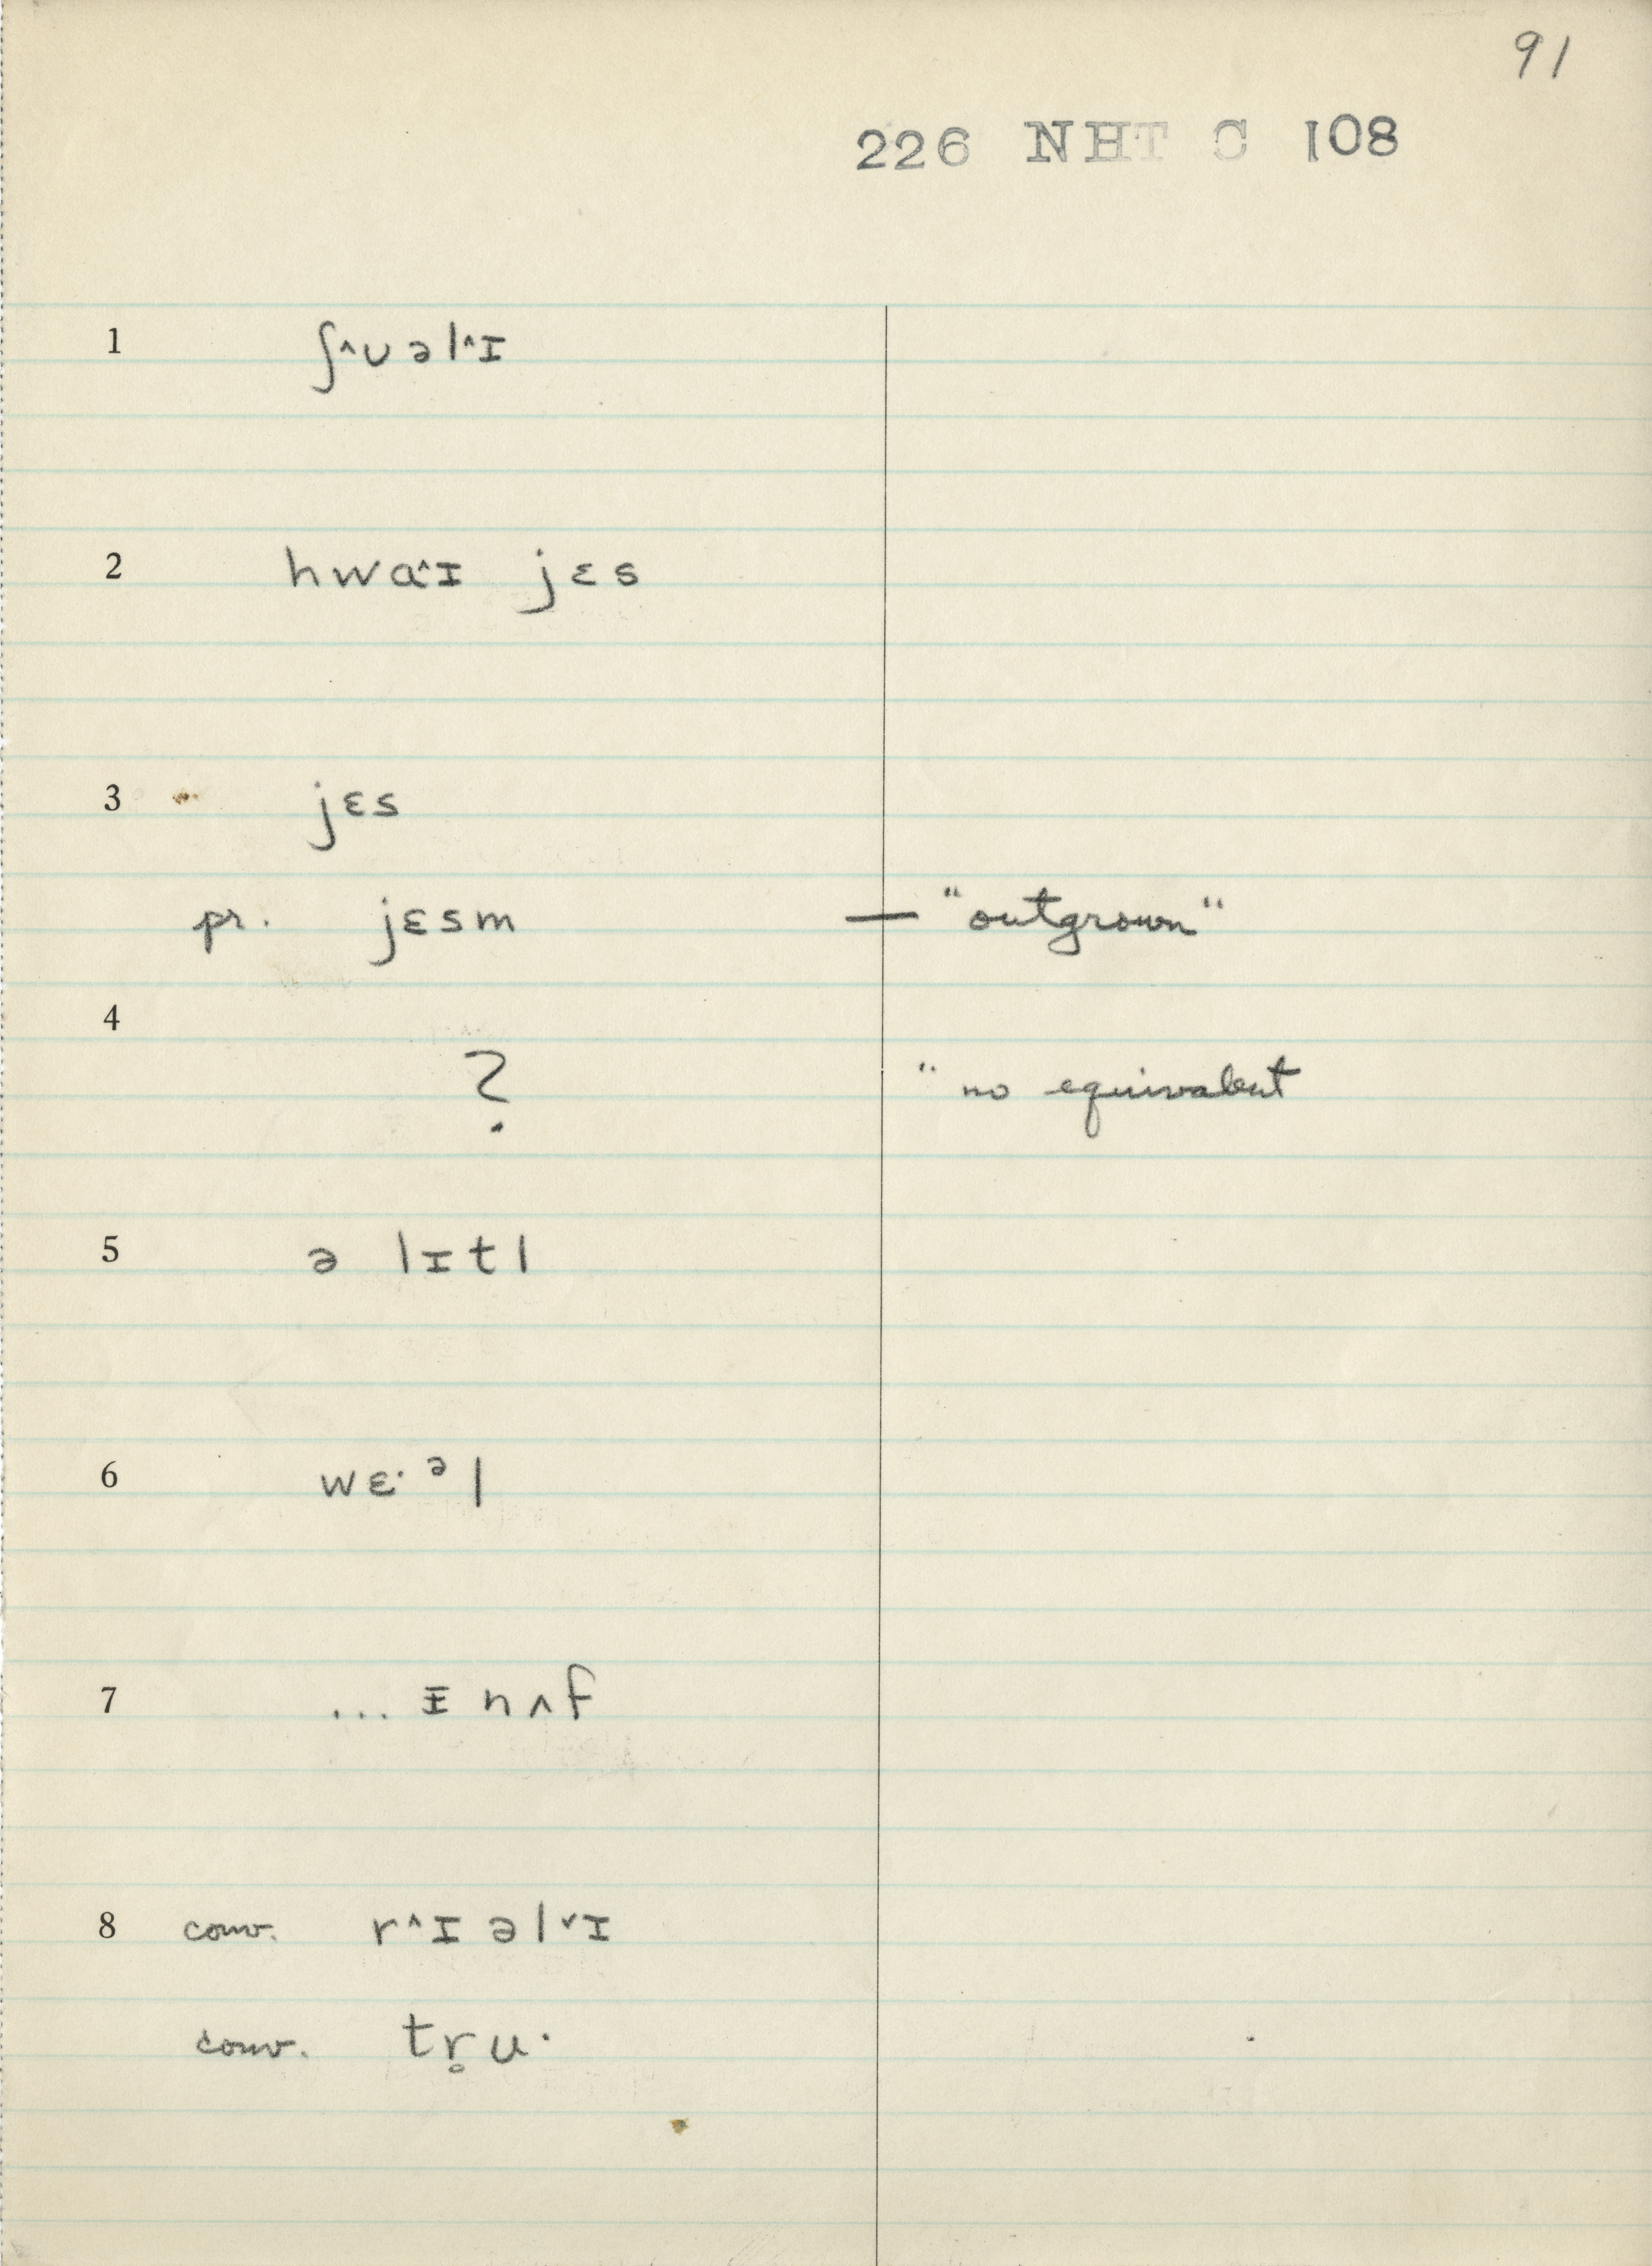 91
226 NHT C 108
1 ʃ˄ʊəl˄ɪ
2 hwɑ˄ɪ jɛs
3 jɛs
pr. jɛsm — "outgrown"
4
? " no equivalent
5 ə lɪtl
6 wɛ·ᵊl
7 ... ᵻnʌf
8 conv. r˄ɪəl˅ɪ
conv. tr̥u·